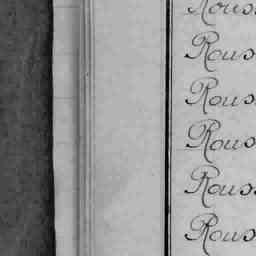 Rous
Rous
Rous
Rous
Rous
Rous